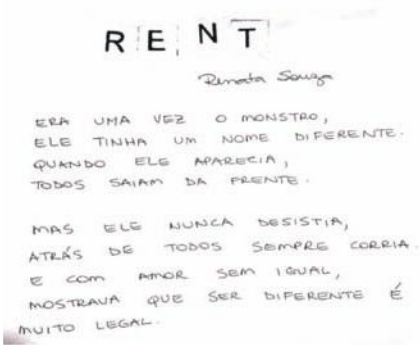 RENT
Renata Souza
ERA UMA VEZ O MONSTRO,
ELE TINHA UM NOME DIFERENTE.
QUANDO ELE APARECIA,
TODOS SAIAM DA FRENTE.
MAS ELE NUNCA DESISTIA,
ATRÁS DE TODOS SEMPRE CORRIA.
E COM AMOR SEM IGUAL,
MOSTRAVA QUE SER DIFERENTE É
MUITO LEGAL.